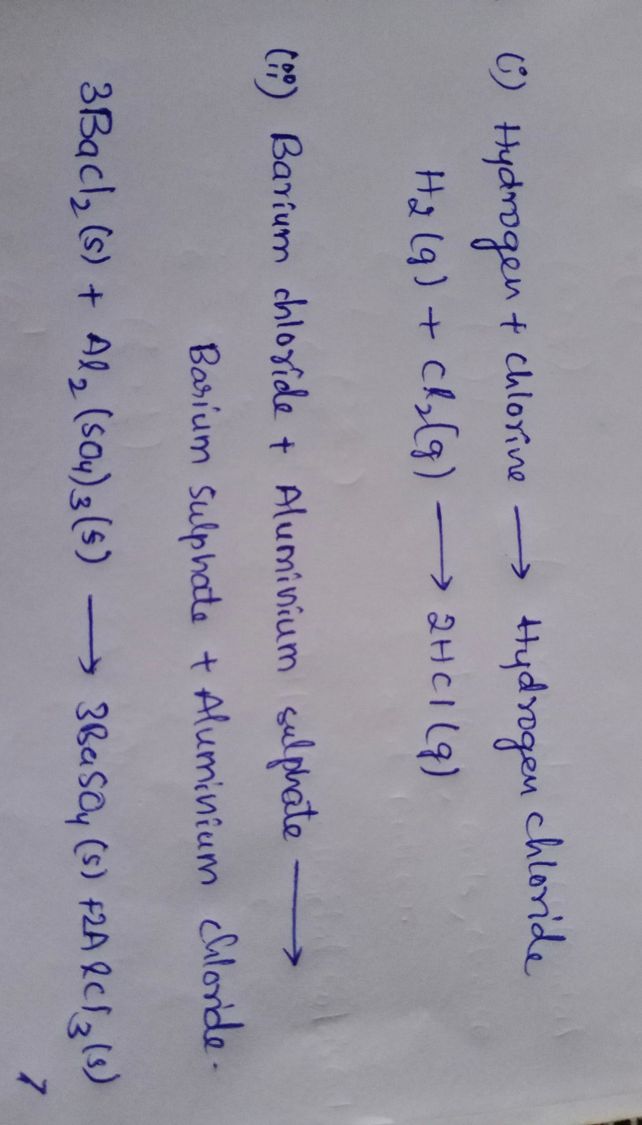 (i) Hydrogen + chlorine ⟶ Hydrogen chloride
H₂(g) + Cl₂(g) ⟶ 2HCl(g)
(ii) Barium chloride + Aluminium sulphate ⟶
Barium sulphate + Aluminium chloride.
3BaCl₂(s) + Al₂(SO₄)₃(s) ⟶ 3BaSO₄(s) + 2AlCl₃(s)